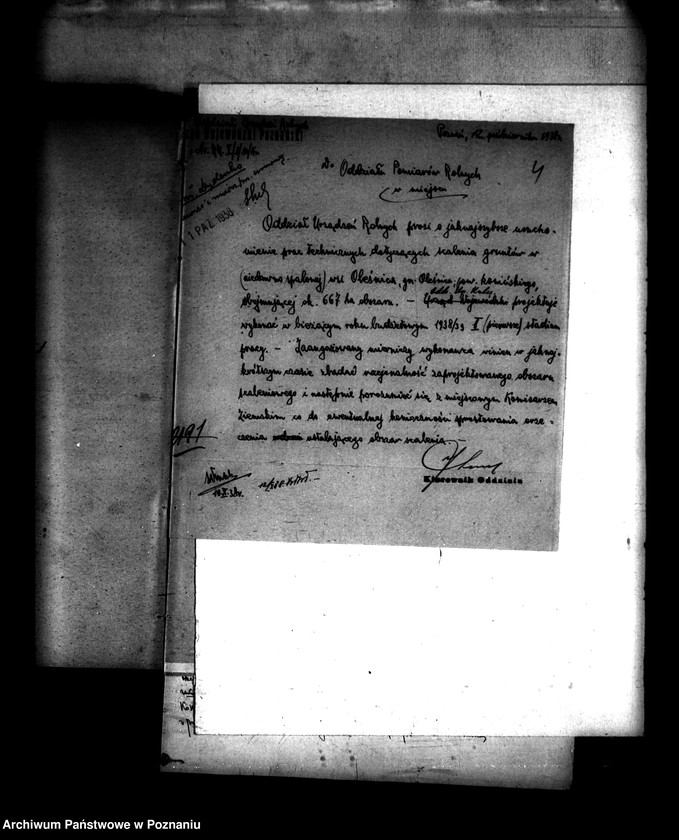 URZĄD WOJEWÓDZKI POZNAŃSKI
Poznań, 12 października 1938 r.
4
Do Oddziału Pomiarów Rolnych
w miejscu
1 PAŹ. 1938
Oddział Urządzeń Rolnych prosi o jaknajszybsze urucho-
mienie prac technicznych dotyczących scalenia gruntów w
wsi Oleśnica, gm. Oleśnica, pow. konińskiego,
obejmującej ok. 667 ha obszaru. – Urząd Wojewódzki projektuje
wykonać w bieżącym roku budżetowym 1938/39 I (pierwsze) stadium
pracy. – Zaangażowany mierniczy wykonawca winien w jaknaj-
krótszym czasie zbadać racjonalność zaprojektowanego obszaru
scaleniowego i następnie porozumieć się z miejscowym Komisarzem
Ziemskim co do ewentualnej konieczności sprostowania orze-
czenia ustalającego obszar scalenia. –
Kierownik Oddziału
Archiwum Państwowe w Poznaniu